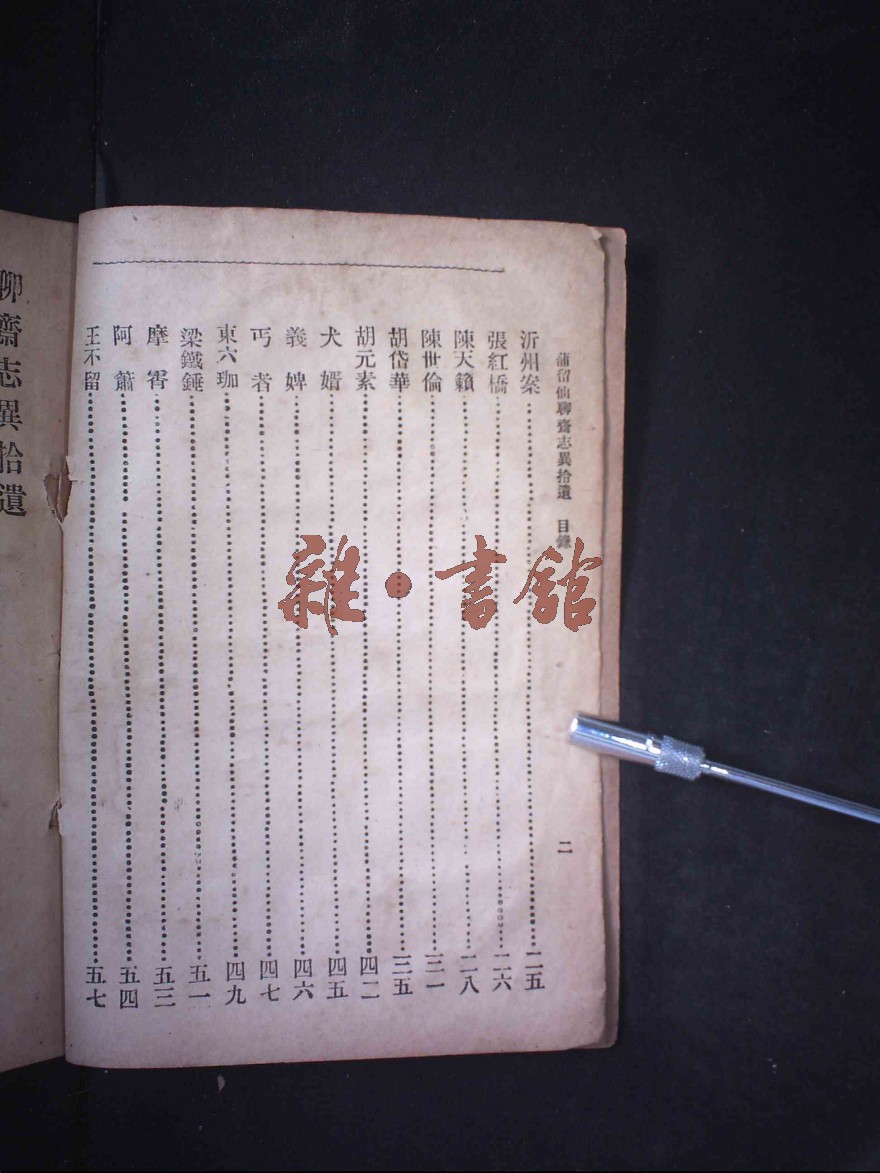 蒲留仙聊齋志異拾遺 目錄 二
沂州案 二五
張紅橋 二六
陳天籟 二八
陳世倫 三一
胡岱華 三五
胡元素 四二
犬婿 四五
義婢 四六
丐者 四七
東六珈 四九
梁鐵錘 五一
摩霄 五三
阿蕭 五四
王不留 五七
聊齋志異拾遺
雜·書館